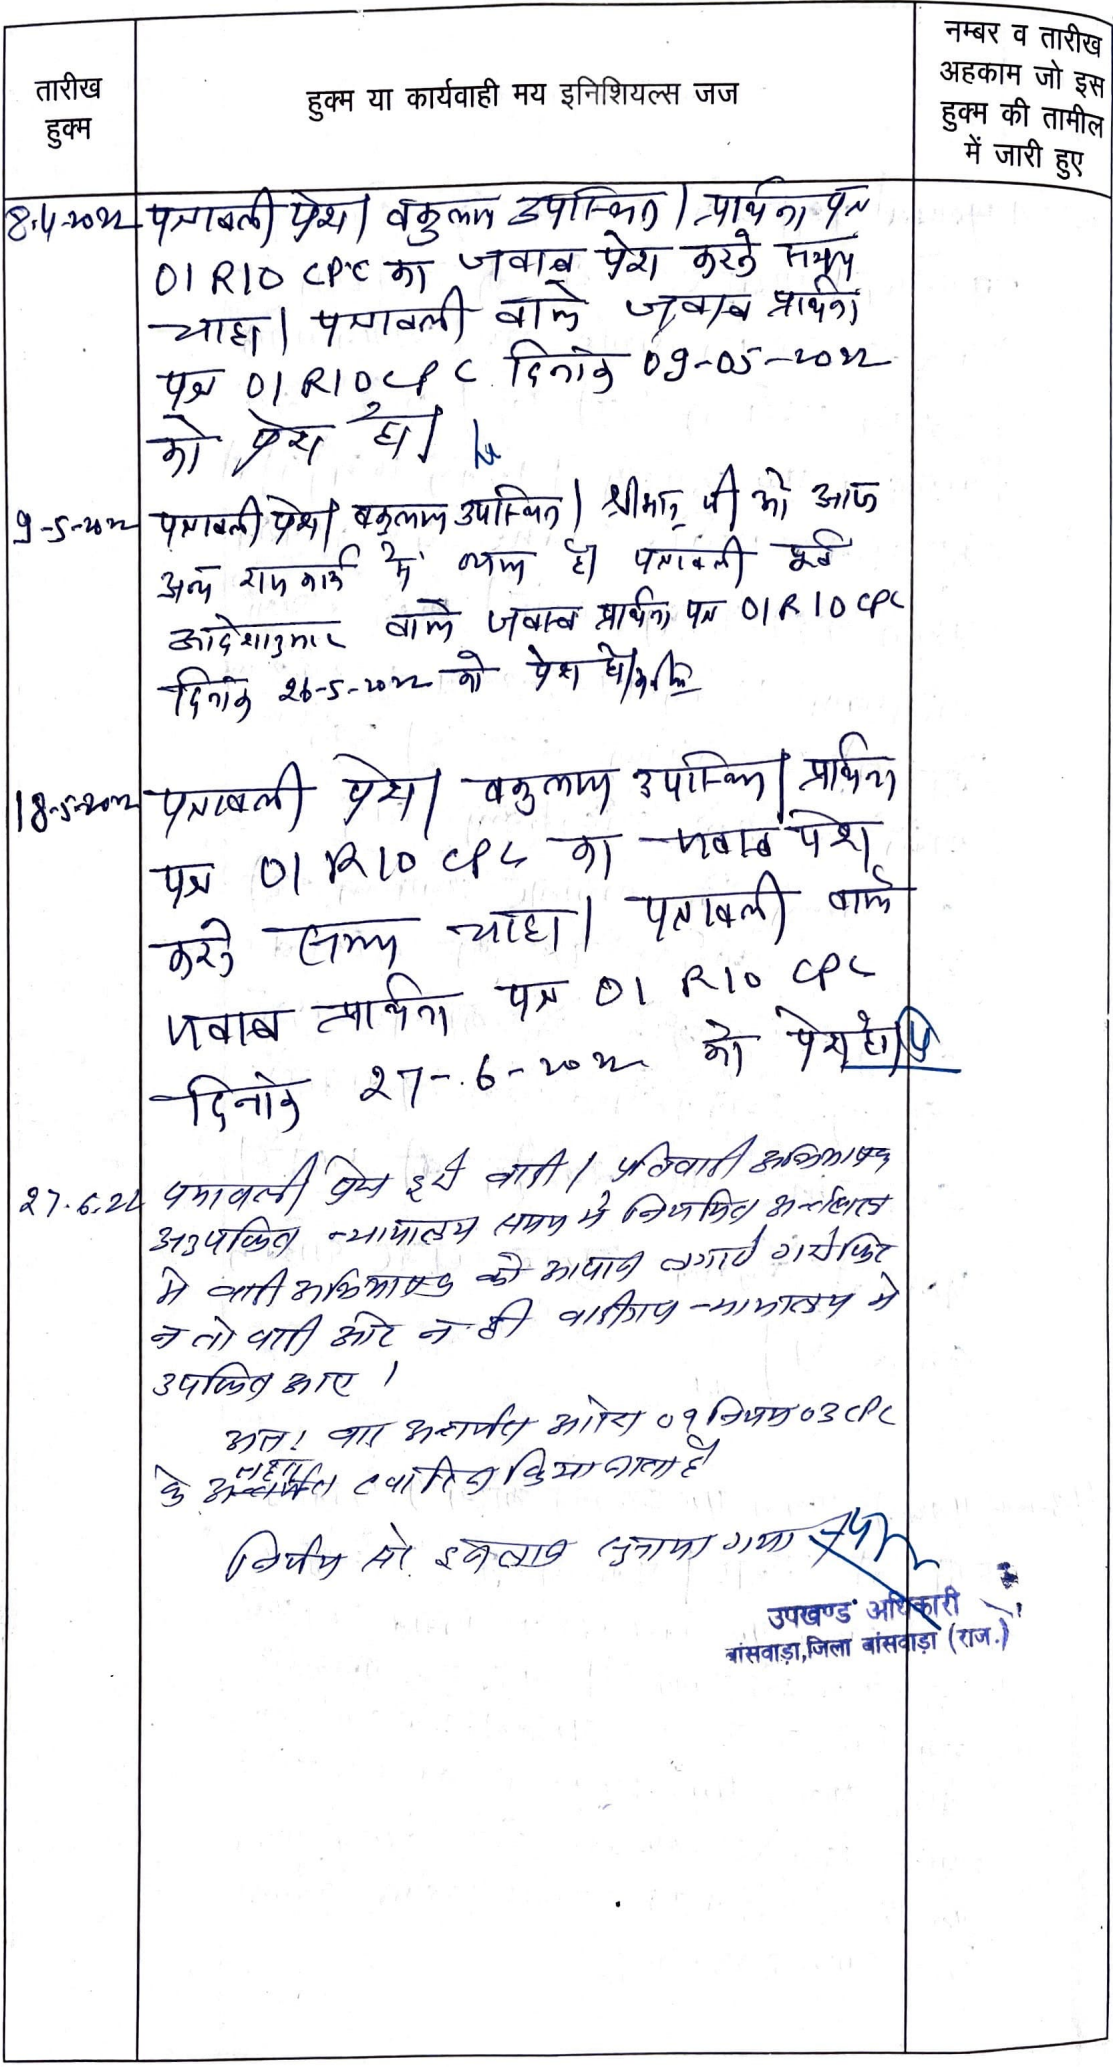 तारीख
हुक्म
हुक्म या कार्यवाही मय इनिशियल्स जज
नम्बर व तारीख
अहकाम जो इस
हुक्म की तामील
में जारी हुए
8-4-2022 पत्रावली पेश। वकुलाय उपस्थित। प्रार्थना पत्र
01 R10 CPC का जवाब पेश करने समय
चाहा। पत्रावली वास्ते जवाब प्रार्थना
पत्र 01 R10 CPC दिनांक 09-05-2022
को पेश हो।
9-5-2022 पत्रावली पेश। वकुलाय उपस्थित। श्रीमान् जी को आज
अन्य राजकार्य में व्यस्त है। पत्रावली पूर्व
आदेशानुसार वास्ते जवाब प्रार्थना पत्र 01 R 10 CPC
दिनांक 26-5-2022 को पेश हो।
18-5-2022 पत्रावली पेश। वकुलाय उपस्थित। प्रार्थना
पत्र 01 R10 CPC का जवाब पेश
करने समय चाहा। पत्रावली वास्ते
जवाब प्रार्थना पत्र 01 R10 CPC
दिनांक 27-6-2022 को पेश हो।
27.6.22 पत्रावली पेश हुई वादी / प्रतिवादी अभिभाषक
अनुपस्थित न्यायालय समय मे नियमित अन्तराल
मे वादी अभिभाषक को आवाज लगाई गई फिर
न तो वादी और न ही वादीगण न्यायालय मे
उपस्थित आए।
अतः वाद अन्तर्गत आदेश 09 नियम 03 CPC
के तहत खारिज किया जाता है
निर्णय सरे इजलास सुनाया गया
उपखण्ड अधिकारी
बांसवाड़ा,जिला बांसवाड़ा (राज.)